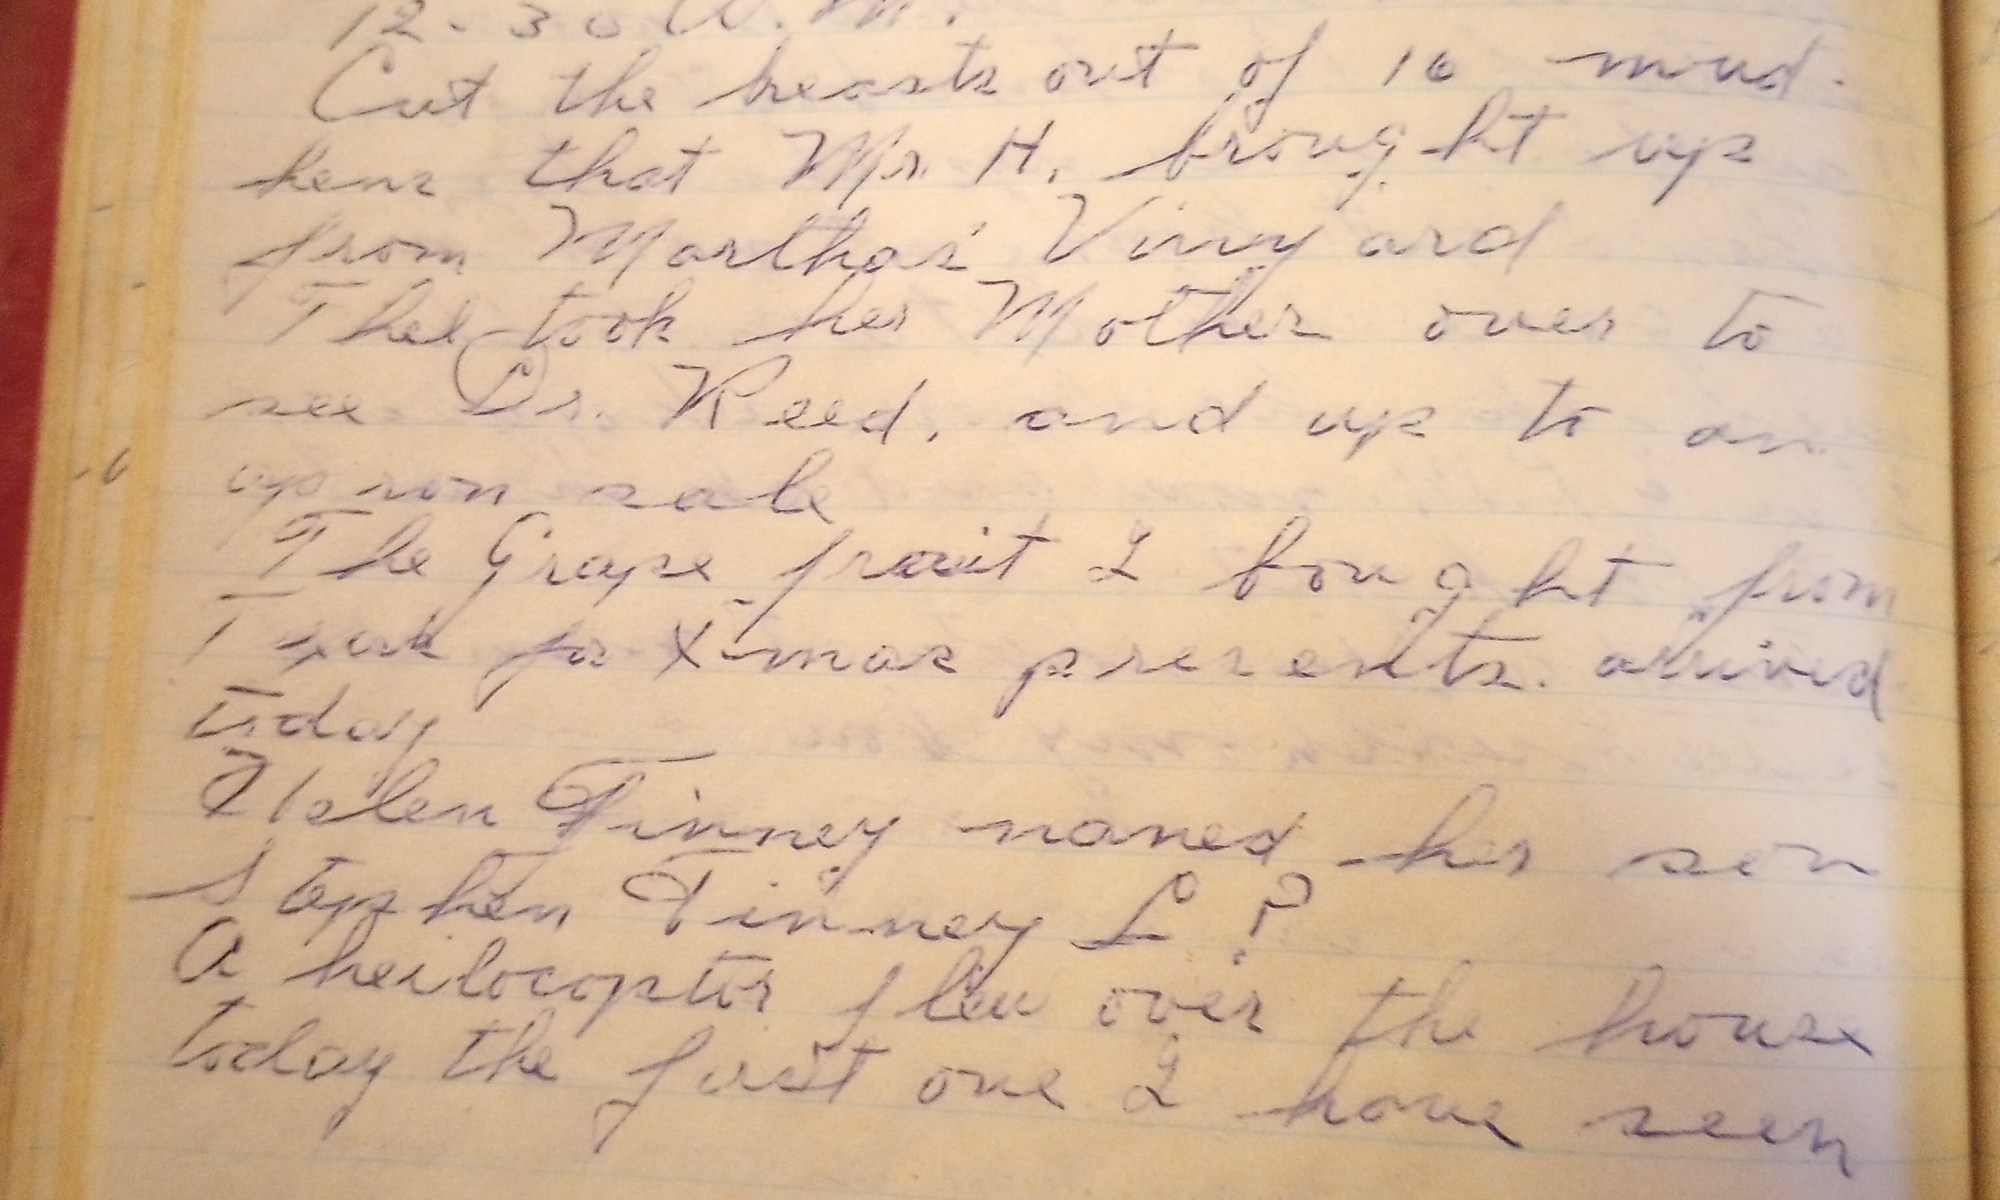 12-30 A.M.
Cut the breasts out of 16 mud-
hens that Mr. H. brought up
from Marthas' Vinyard
Thel took her Mother over to
see Dr. Reed, and up to an
apron sale
The Grape fruit I bought from
for X-mas presents. arrived
today
Helen Finney named her son
Stephen Finney L ?
A heilocoptor flew over the house
today the first one I have seen